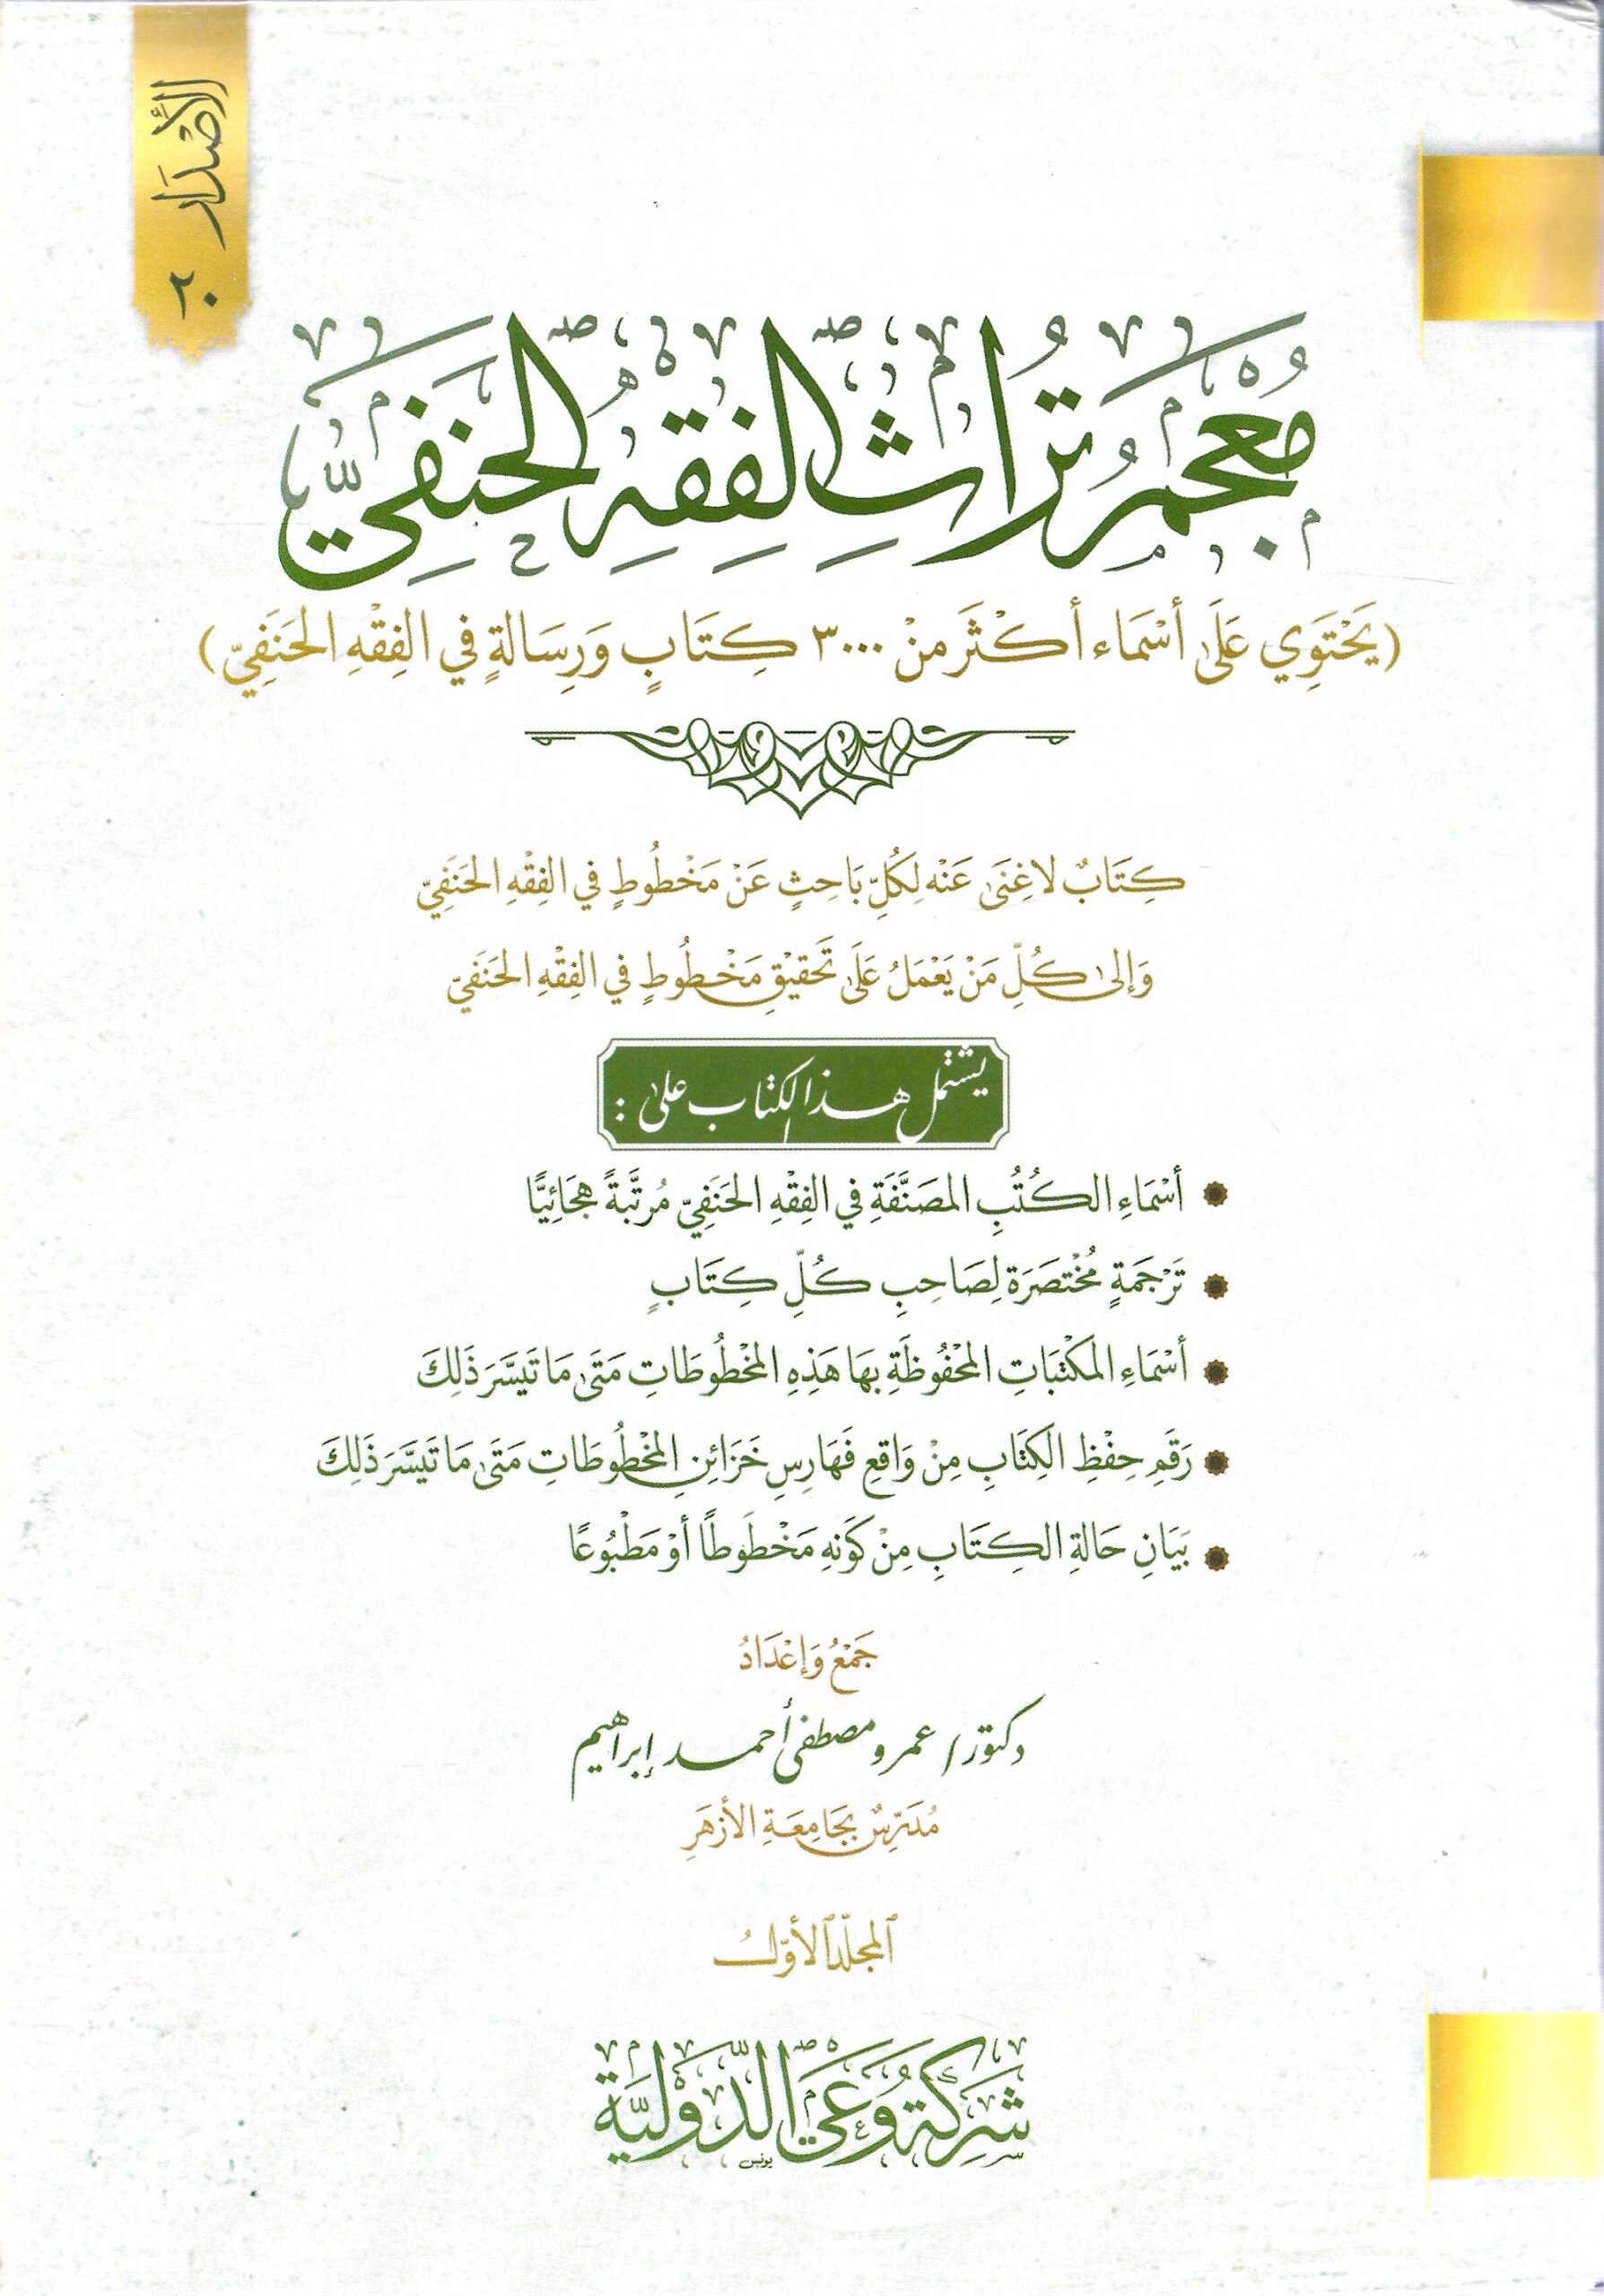 الأصْدَار ٢٠
مُعْجَمُ تُرَاثِ الفِقْهِ الحَنَفِيِّ
(يَحْتَوِي عَلَىٰ أَسْمَاء أَكْثَر مِنْ ٣٠٠٠ كِتَابٍ وَرِسَالةٍ في الفِقْهِ الحَنَفِيّ)
كِتَابٌ لا غِنَىٰ عَنْه لِكُلِّ بَاحِثٍ عَنْ مَخْطُوطٍ في الفِقْهِ الحَنَفِيّ
وَإلىٰ كُلِّ مَنْ يَعْمَلُ عَلَىٰ تَحقيْقِ مَخْطُوطٍ في الفِقْهِ الحَنَفيّ
يشتمل هذا الكتاب علىٰ :
أسْمَاءِ الكُتُبِ المصَنَّفَةِ في الفِقْهِ الحَنَفِيّ مُرتَّبَةً هِجَائِيًّا
تَرْجَمَةٍ مُخْتصَرَة لِصَاحِبِ كُلِّ كِتَابٍ
أسْمَاءِ المكْتبَاتِ المحْفُوظَةِ بهَا هَذِهِ المخْطُوطَاتِ مَتَىٰ مَا تَيَسَّرَ ذَلِكَ
رَقَمِ حِفْظِ الكِتَابِ مِنْ وَاقعِ فَهَارِسِ خَزَائِنِ المخْطُوطَاتِ مَتَىٰ مَا تَيَسَّرَ ذَلِكَ
بَيَانِ حَالةِ الكِتَابِ مِنْ كَوْنهِ مَخْطُوطًا أوْ مَطْبُوعًا
جَمْعُ وَإعْدَادُ
دكتور/ عمرو مصطفى أحمد إبراهيم
مُدَرِّسٌ بجَامِعَةِ الأزهَرِ
المجلّد الأوّلُ
شَرِكَة وَعْي الدَّوْليَّة
يونس